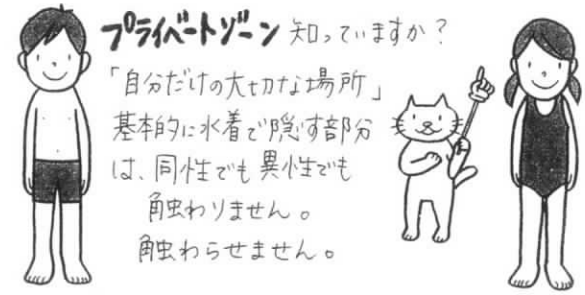 プライベートゾーン 知っていますか？
「自分だけの大切な場所」
基本的に水着で隠す部分
は、同性でも異性でも
触わりません。
触わらせません。